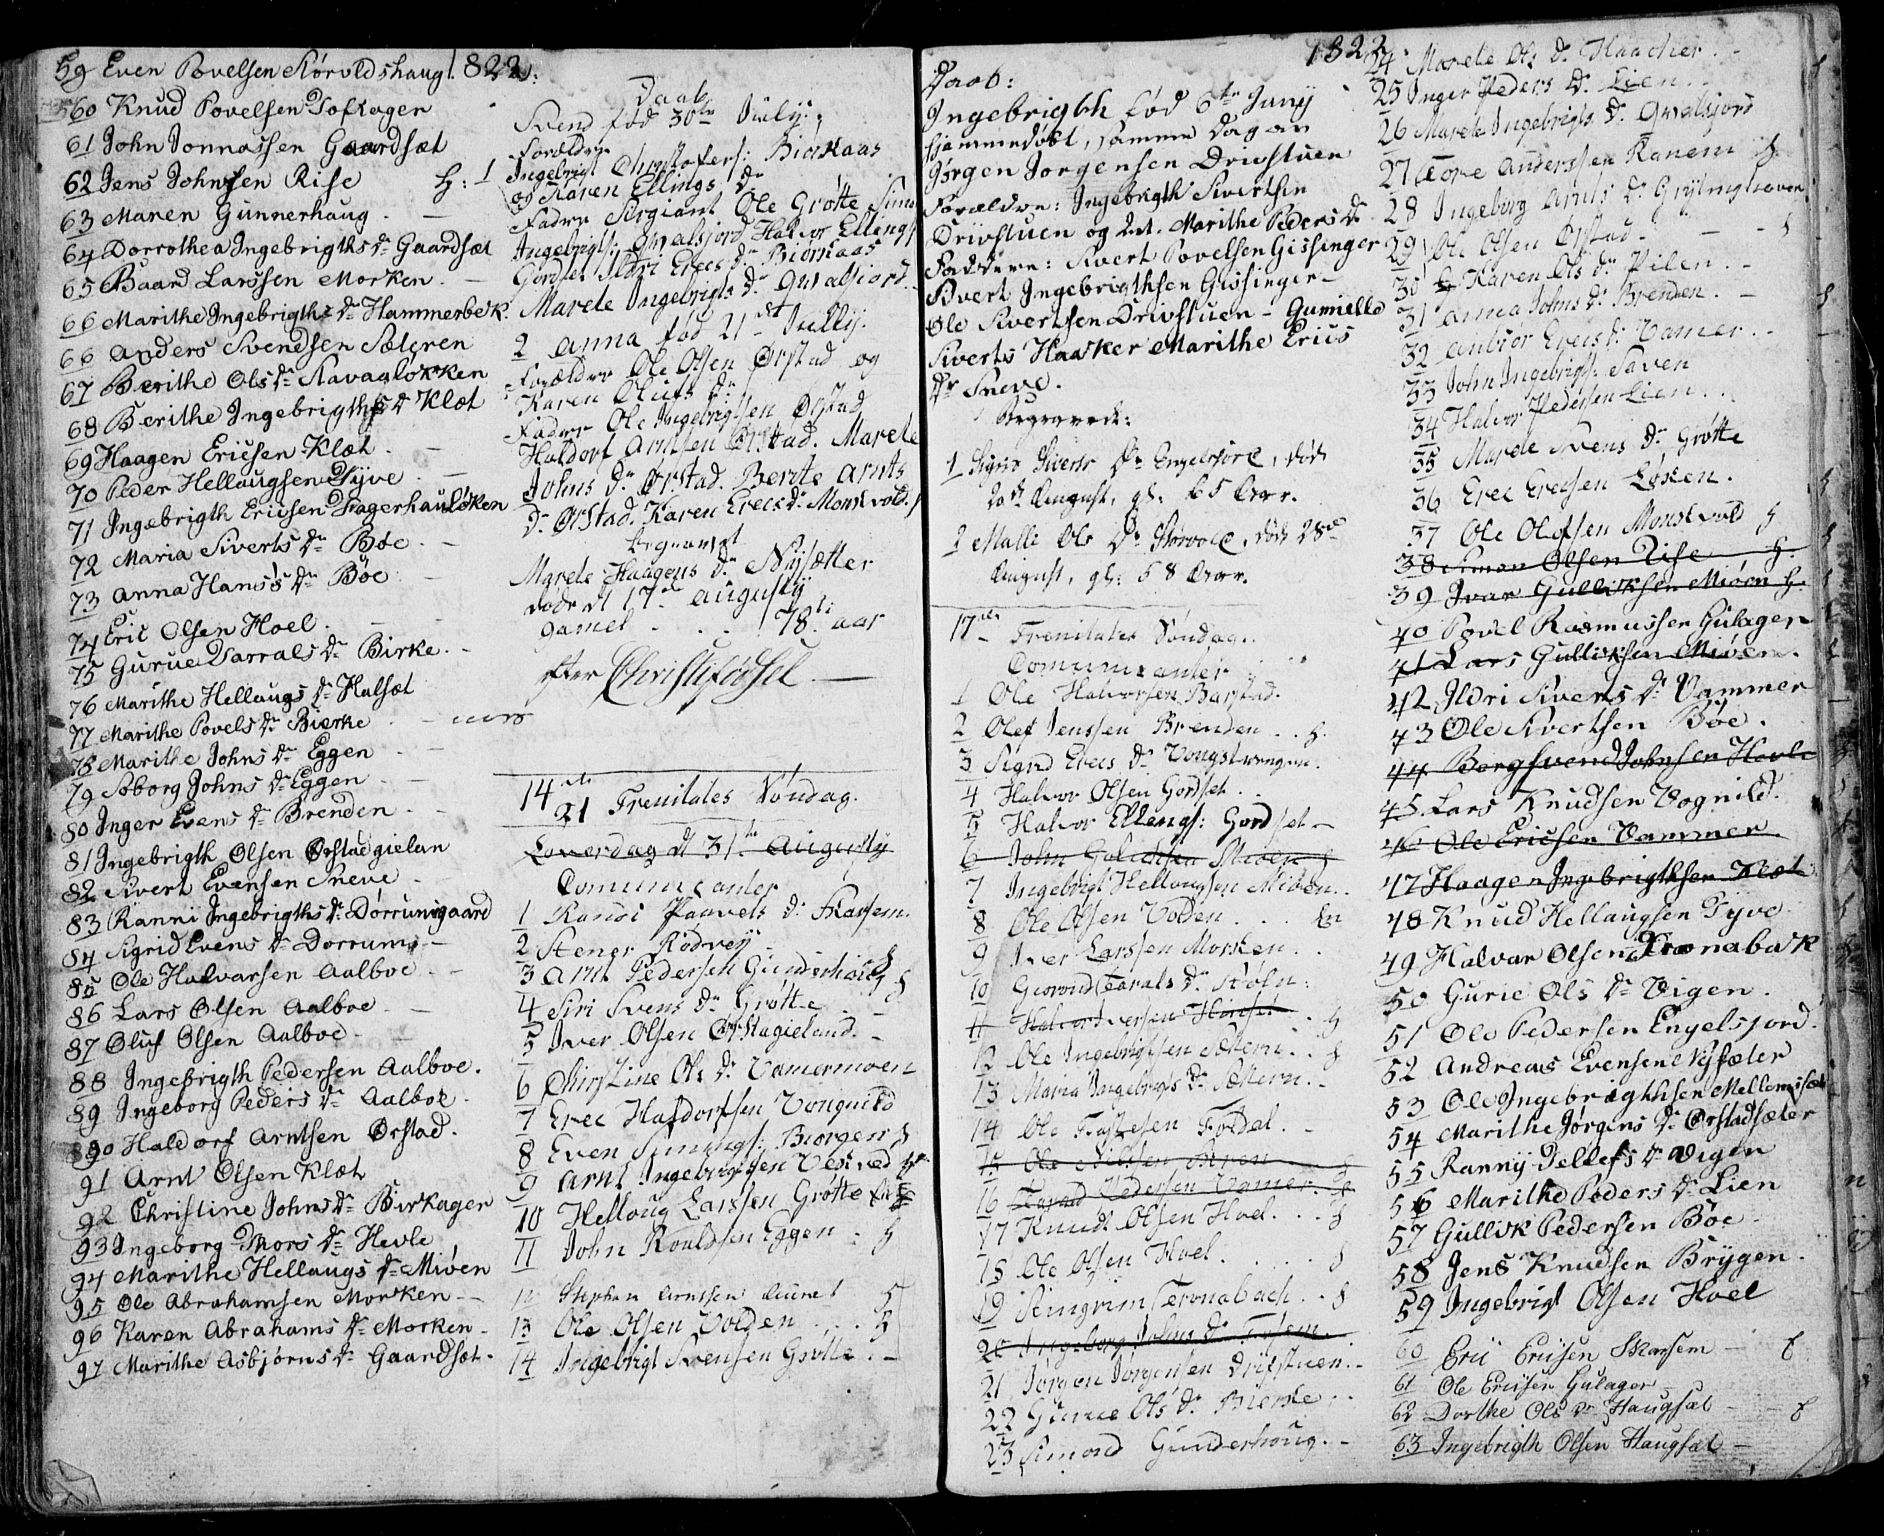 1822.
59 Even Povelsen Størvoldshaug
60 Knud Povelsen Tofhager
61 John Jonnassen Gaardsæt
62 Jens Johnsen Rise H:
63 Maren Gunnerhaug
64 Dorrothea Ingebrigths Dr Gaardsæt
65 Baard Larssen Morken
66 Marithe Ingebrigths Dr Hammerbek
66 Anders Svendsen Sæteren
67 Berithe Ols Dr Stavaaløkken
68 Berithe Ingebrigths Dr Klæt
69 Haagen Ericsen Klæt
70 Peder Hellaugsen Tyve
71 Ingebrigth Ericsen
72 Maria Siverts Dr Bøe
73 Anna Hans's Dr Bøe
74 Eric Olsen Hoel
75 Gurue Tarrals Dr Birke
76 Marithe Hellaugs Dr Halsæt
77 Marithe Povels Dr Bierke
78 Marithe Johns Dr Eggen
79 Søborg Johns Dr Eggen
80 Inger Evens Dr Brenden
81 Ingebrigth Olsen Ørstadgielan
82 Sivert Evensen Sneve
83 Ranni Ingebrigths Dr Dorrumsgaard
84 Sigrid Evens Dr Dorrums
85 Ole Halvarsen Aalboe
86 Lars Olsen Aalboe
87 Oluf Olsen Aalboe
88 Ingebrigth Pedersen Aalboe.
89 Ingeborg Peders Dr Aalboe
90 Haldorf Arntsen Ørstad.
91 Arnt Olsen Klæt
92 Christine Johns Dr Birkager
93 Ingeborg Thors Dr Hevle
94 Marithe Hellaugs Dr Miøen
95 Ole Abrahamsen Morken
96 Karen Abrahams Dr Morken
97 Marithe Asbjørns Dr Gaardsæt
Daab
1 Svend fød 30te Iuly:
Forældre
Ingebrigt Christofers: Biørkaas
og Karen Ellings Dr
Fadre Sergiant Ole Grøtte
Ingebrigts: Qvalsjord Halvor Ellings
Gordset Ildri Erecs Dr Biørkaas
Marele Ingebrigts Dr Qvalsiord
2 Anna fød 21de Iuly.
Forældre Ole Olsen Ørstad og
Karen Olufs Dr
Fadre Ole Ingebrigtsen Ørstad
Haldorf Arntsen Ørstad. Marele
Johns Dr Ørstad. Berete Arnts
Dr Ørstad. Karen Erecs Dr Monsvold
Begravet
Marele Haagens Dr Nysætter
døde d 17de Augusty
gamel 78ti aar
efter Christi fødsel.
14de
21 Trenitates Søndag.
Løverdag d 31te Augusty
Comunicanter
1 Randi Paavels Dr Skarsem
2 Stener Rødvey
3 Arnt Pedersen Gunderhoug H
4 Siri Svens Dr Grøtte
5 Iver Olsen Ørstagieland.
6 Christine Ols Dr Vamermoen
7 Erec Haldorfsen Vongnild
8 Even Simings: Biorgen H
9 Arnt Ingebrigtsen Vestved
10 Helloug Larssen Grøtte
11 John Roaldsen Eggen H
12 Stephen Arnssen H
13 Ole Olsen Volden H
14 Ingebrigt Svensen Grøtte
1822.
Daab:
Ingebrigth fød 6te Juny
hjemmedøbt, samme dag av
Jørgen Jørgensen Drivstuen
Forældre: Ingebrigth Sivertsen
Drivstuen og Marithe Peders Dr
Faddere: Sivert Povelsen Gissinger
Sivert Ingebrigthsen Gissinger
Ole Sivertsen Drivstuen - Gumiello
Siverts Haaker Marithe Erics
Dr Sneve.
Begravede:
1 Sigrid Siverts Dr Engelsjord, døde
August, gl: 65 Aar.
2 Malli Ols Dr Størvold, døde 28de
August, gl: 58 Aar.
17de Trenitates Søndag.
Comunicanter
1 Ole Halvorsen Barstad.
2 Olef Jenssen Brenden H.
3 Sigrid Erecs Dr Vongstrengen.
4 Halvor Olsen Gordset
5 Halvor Ellengs: Gordset
6 John Guliksen Mioen H
7 Ingebrigt Hellougsen Mioen.
8 Ole Olsen Volden
9 Iver Larssen Morken
10 Gurond Tarals Dr Støln.
11 Halvor Iversen H
12 Ole Ingebrigtsen Sættern H
13 Maria Ingebrigts Dr Sættern.
14 Ole Foldal.
15 Ole H
16 Tarald Pedersen Vamer H
17 Knudt Olsen Hoel H
18 Ole Olsen Hoel H
19 Stingrim Tronabach H
20 Ingeborg Johns Dr
21 Jørgen Jørgensen Drifstuen
22 Gurue Ols Dr Bierke
23 Simond Gunderhoug.
24 Marele Ols Dr Haacher
25 Inger Peders Dr Lien
26 Marele Ingebrigts Dr Qvalsjord
27 Tore Anderssen Ranem H
28 Ingeborg Arnts Dr
29 Ole Olsen Ørstad H
30 Karen Ols Dr Pilen
31 Anna Johns Dr Brenden.
32 Anbiør Erecs Dr Vamer
33 John Ingebrigts: Saven
34 Halvor Pedersen Lien
35 Marele Svens Dr Grøtte
36 Erec Erecsen Løken.
37 Ole Olofsen Monsvold H
38 Simon Olsen Rise H:
39 Ivar Gulliksen Miøen H.
40 Povel Rasmussen Gulager
41 Lars Gulliksen Miøen.
42 Ildri Siverts Dr Vammer
43 Ole Sivertsen Bøe.
44 Bergsvend Johnsen Hevle
45 Lars Knudsen Vognild.
46 Ole Ericsen Vammer
47 Haagen Ingebrigthsen Klæt
48 Knud Hellaugsen Tyve
49 Halvar Olsen Tronabak
50 Gurie Ols Dr Vigen.
51 Ole Pedersen Engelsjord.
52 Andreas Evensen Nysæter
53 Ole Ingebrigthsen Mellemsæt
54 Marithe Jørgens Dr Ørstadsæter
55 Ranny Dellefs Dr Vigen
56 Marithe Peders Dr Lien
57 Gullik Pedersen Bøe
58 Jens Knudsen Brygen
59 Ingebrigt Olsen Hoel
60 Eric Ericsen Skarsem
61 Ole Ericsen Gulager
62 Dorthe Ols Dr Haugsæt
63 Ingebrigth Olsen Haugsæt